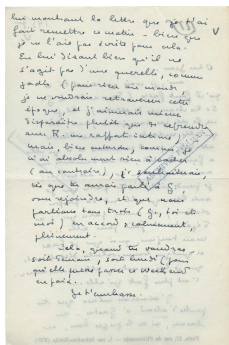 lui montrant la lettre que je t'ai
fait remettre ce matin – bien que
je ne l'aie pas écrite pour cela.
En lui disant bien qu'il ne
s'agit pas d'une querelle, comme
jadis (pour rien au monde
je ne voudrais retrouver cette
époque, et j'aimerais mieux
disparaître plutôt que de reprendre
avec R. un rapport intime
mais, bien entendu, comme je
n'ai absolument rien à cacher
(au contraire), je souhaiterais,
dès que tu auras parlé à G,
vous rejoindre, et que nous
parlions tous trois (G, toi et
moi) en accord, calmement,
pleinement.
Cela, quand tu voudras –
soit demain, soit lundi (pour
qu'elle puisse passer ce week end
en paix.
Je t'embrasse.